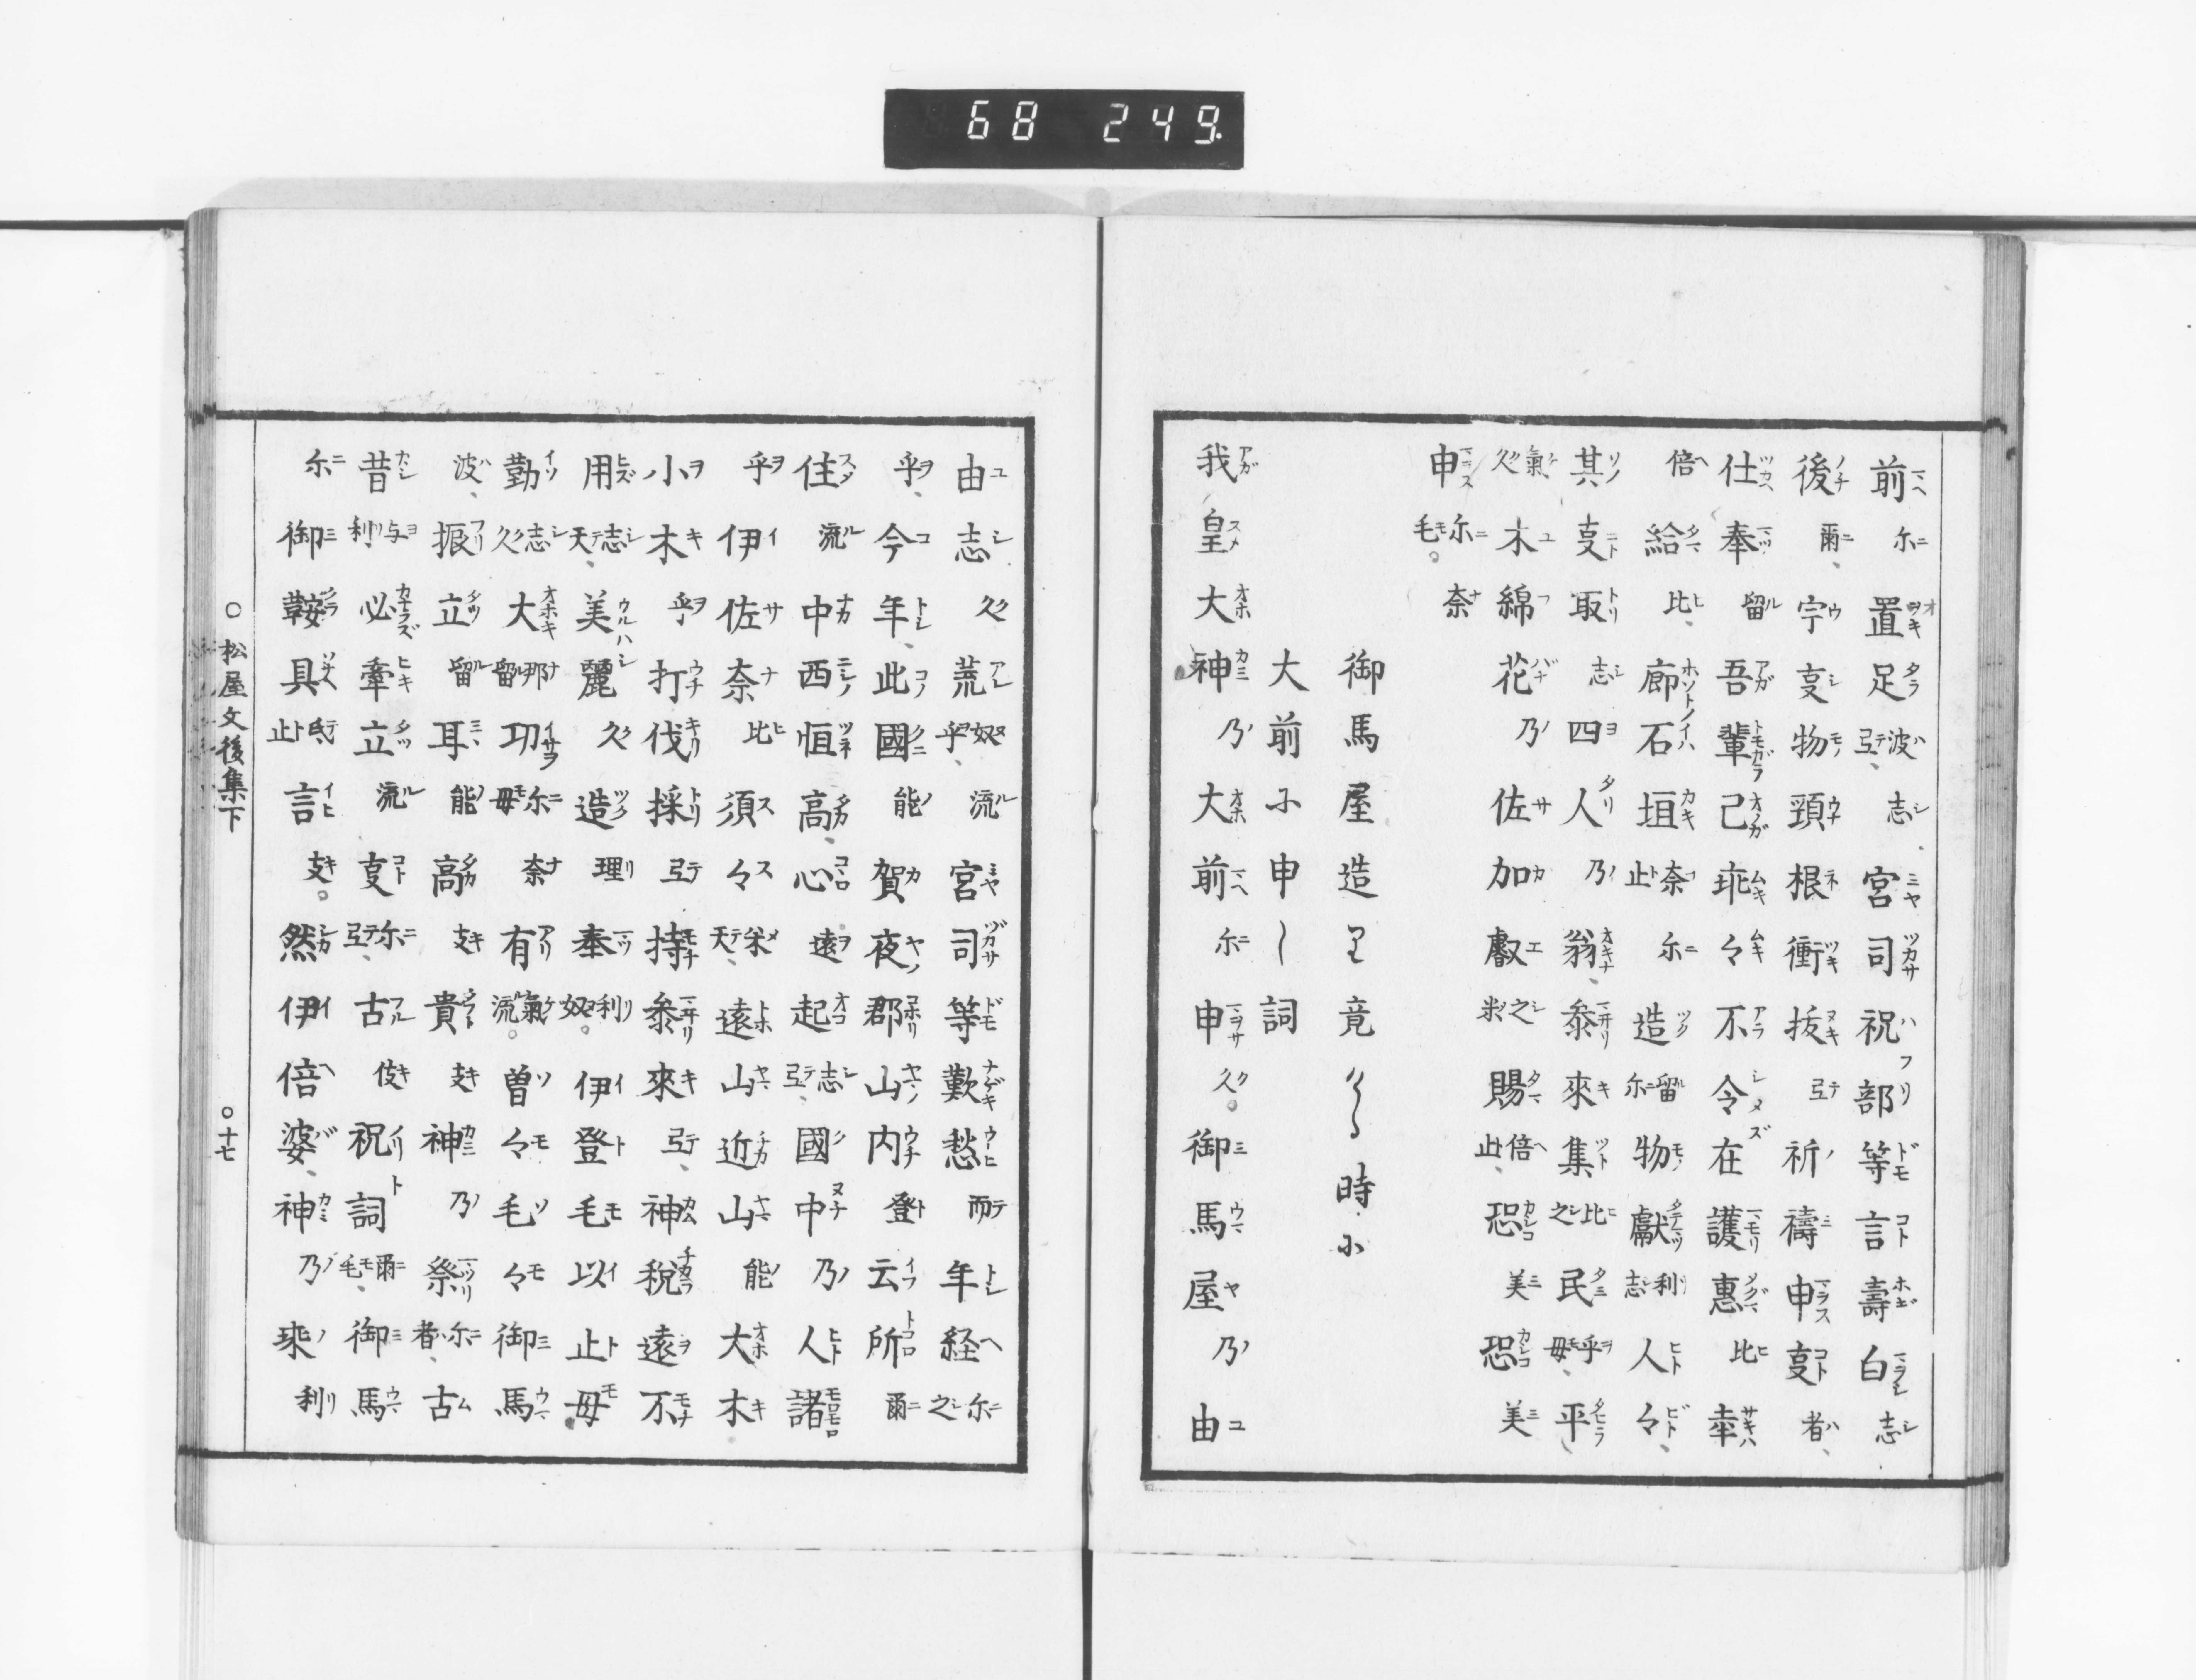 68 249.
前尓置足波弖志宮司祝部等言壽白志
後爾、宇㕝物頸根衝拔弖祈禱申㕝者、
仕奉留吾輩己乖々不令在護惠比幸
倍給比、廊石垣奈止尓造留尓物獻利志人々、
其㕝取志四人乃翁、叅來集比之民乎毋、平
氣久木綿花乃佐加叡之米賜倍止、恐美恐美
申尓毛。奈
御馬屋造り竟くる時小
大前小申し詞
我皇大神乃大前尓申久。御馬屋乃由
由志久荒奴乎、流宮司等歎愁而年経尓之
乎、今年、此國能賀夜郡山内登云所爾
住流中西恒高、心遠起志弖、國中乃人諸
乎伊佐奈比須々米天、遠山近山能大木
小木乎打伐採弖持叅來弖、神税遠不
用志天、美麗久造理奉利奴。伊登毛以止毋
勤志久大那留功尓毋奈有氣流。曽々毛々御馬
波、振立留耳能高支貴支神乃祭尓者、古
昔与利必牽立流㕝尓弖、古伎祝詞爾毛、御馬
尓御鞍具氐止言支。然伊倍婆、神乃乘利
○松屋文後集下 ○十七